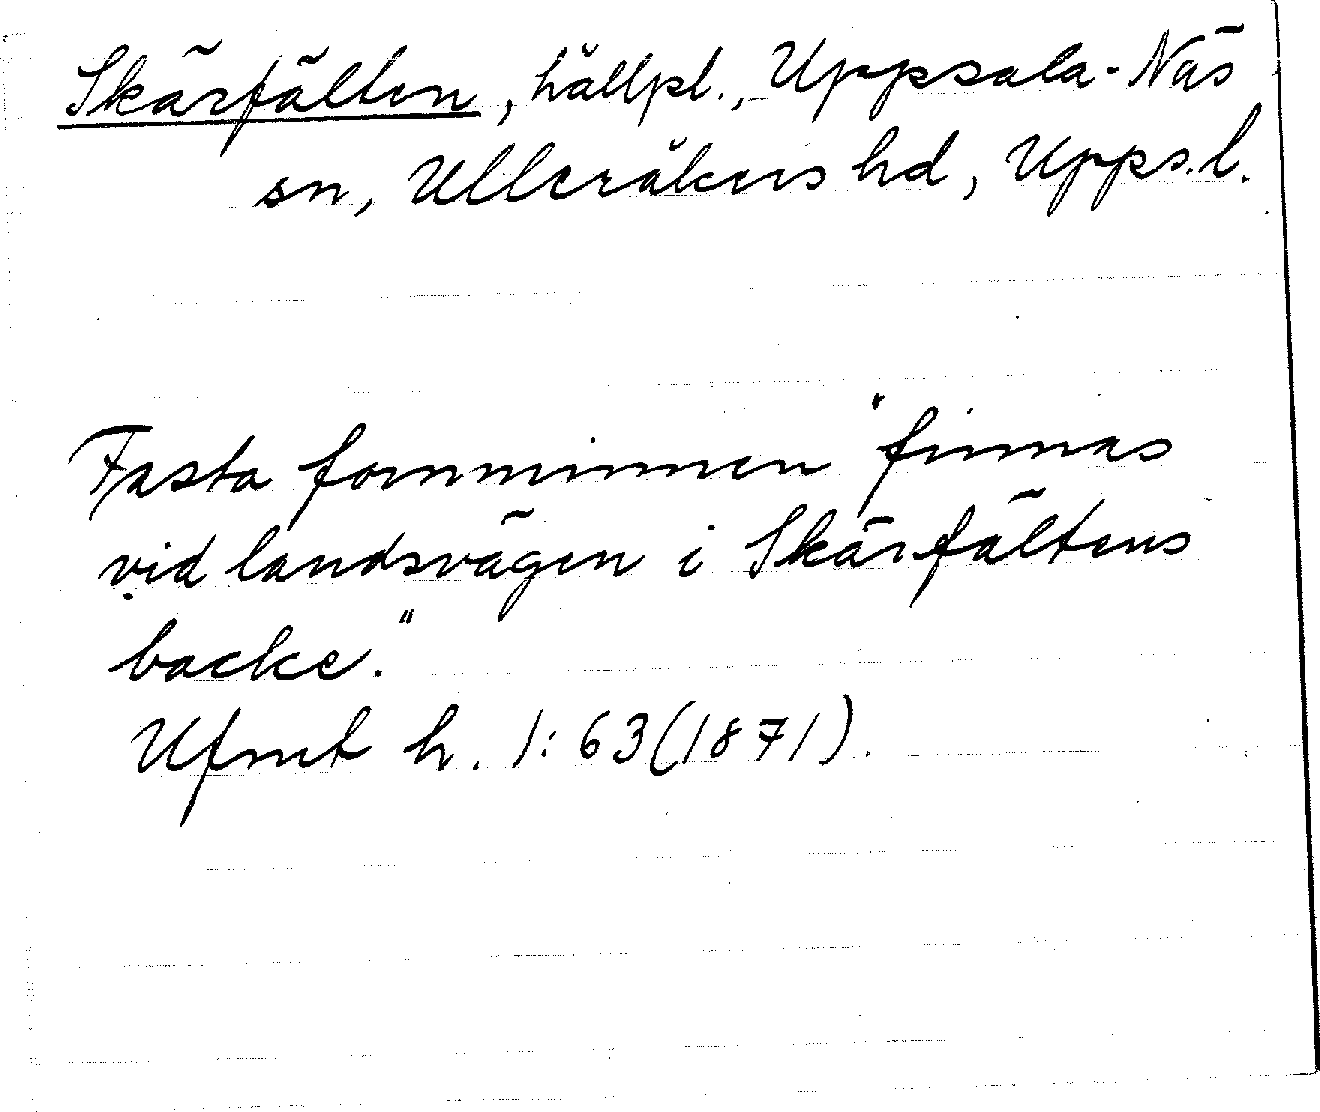 Skärfälten, hållpl., Uppsala-Näs
sn, Ulleråkers hd, Upps.l.
Fasta fornminnen "finnas
vid landsvägen i Skärfältens
backe."
Ufmt h. 1:63(1871).